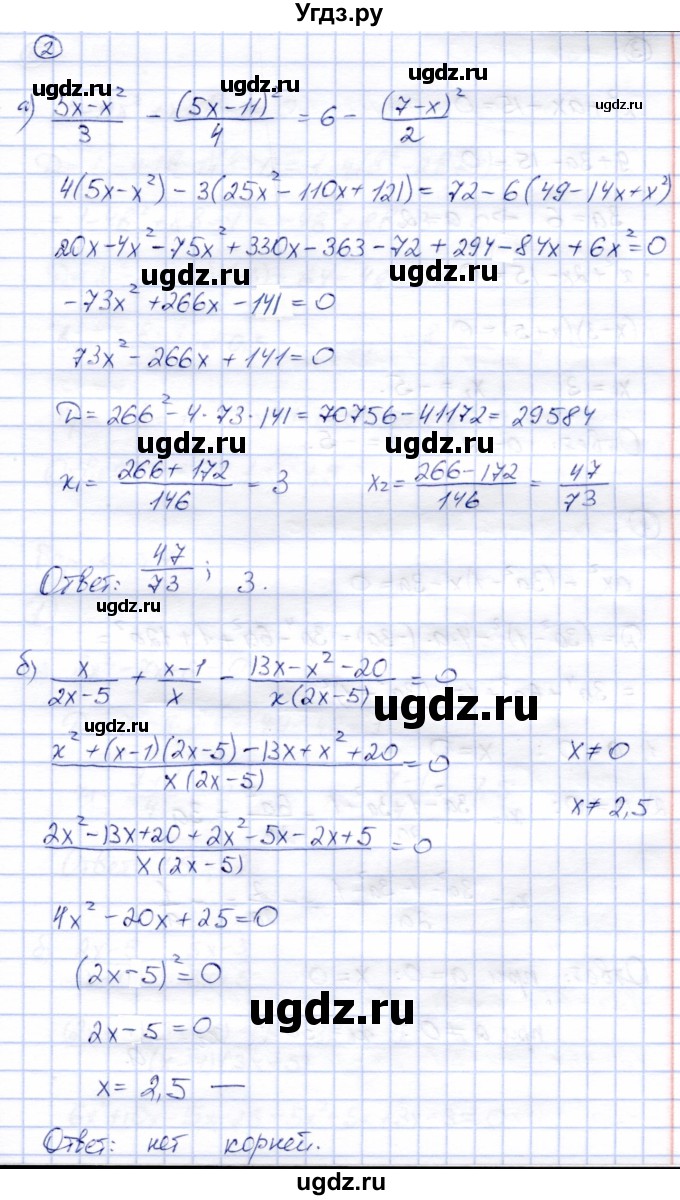 Угдз.ру
②
ugdz.ru ugdz.ru ugdz.ru ugdz.ru
а) (5x-x²)/3 - (5x-11)²/4 = 6 - (7-x)²/2
4(5x-x²) - 3(25x²-110x+121) = 72-6(49-14x+x²)
20x-4x²-75x²+330x-363-72+294-84x+6x²=0
ugdz.ru ugdz.ru
-73x²+266x-141=0
73x²-266x+141=0
D=266²-4·73·141=70756-41172=29584
ugdz.ru ugdz.ru
x₁= (266+172)/146 = 3 x₂= (266-172)/146 = 47/73
Ответ: 47/73; 3.
ugdz.ru ugdz.ru
б) x/(2x-5) + (x-1)/x - (13x-x²-20)/(x(2x-5)) = 0
ugdz.ru
ugdz.ru
(x²+(x-1)(2x-5)-13x+x²+20)/(x(2x-5)) = 0 x≠0
x≠2,5
ugdz.ru
(2x²-13x+20+2x²-5x-2x+5)/(x(2x-5)) = 0
4x²-20x+25=0
(2x-5)²=0
ugdz.ru
2x-5=0
ugdz.ru
x=2,5 —
Ответ: нет корней.
ugdz.ru ugdz.ru